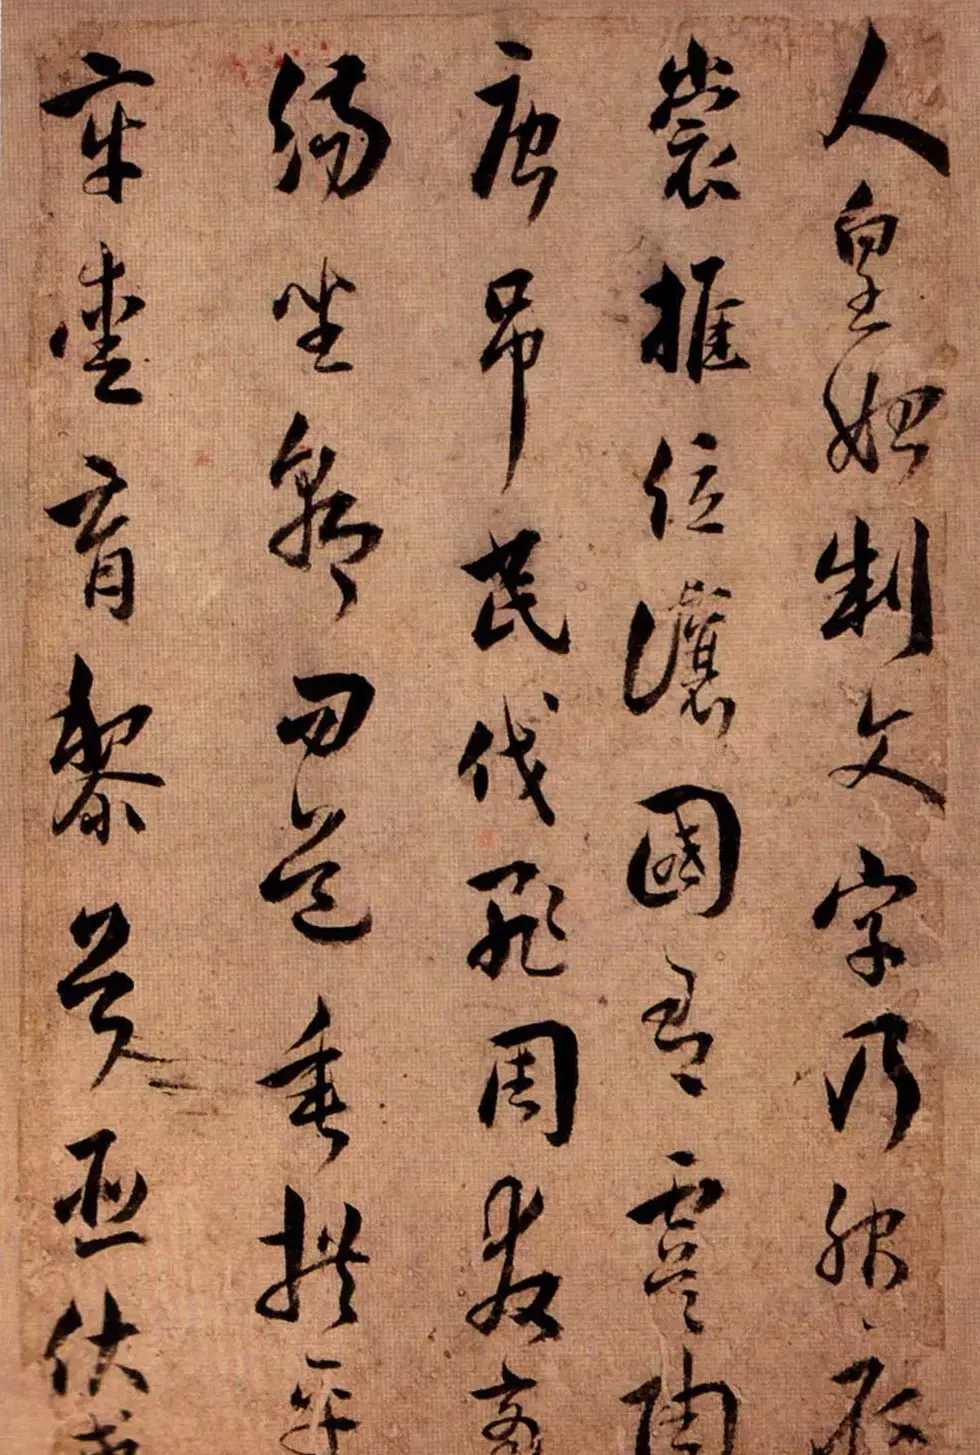 人皇始制文字乃服衣
裳推位讓國有虞陶
唐吊民伐罪周發商
湯坐朝問道垂拱平
章愛育黎首臣伏戎